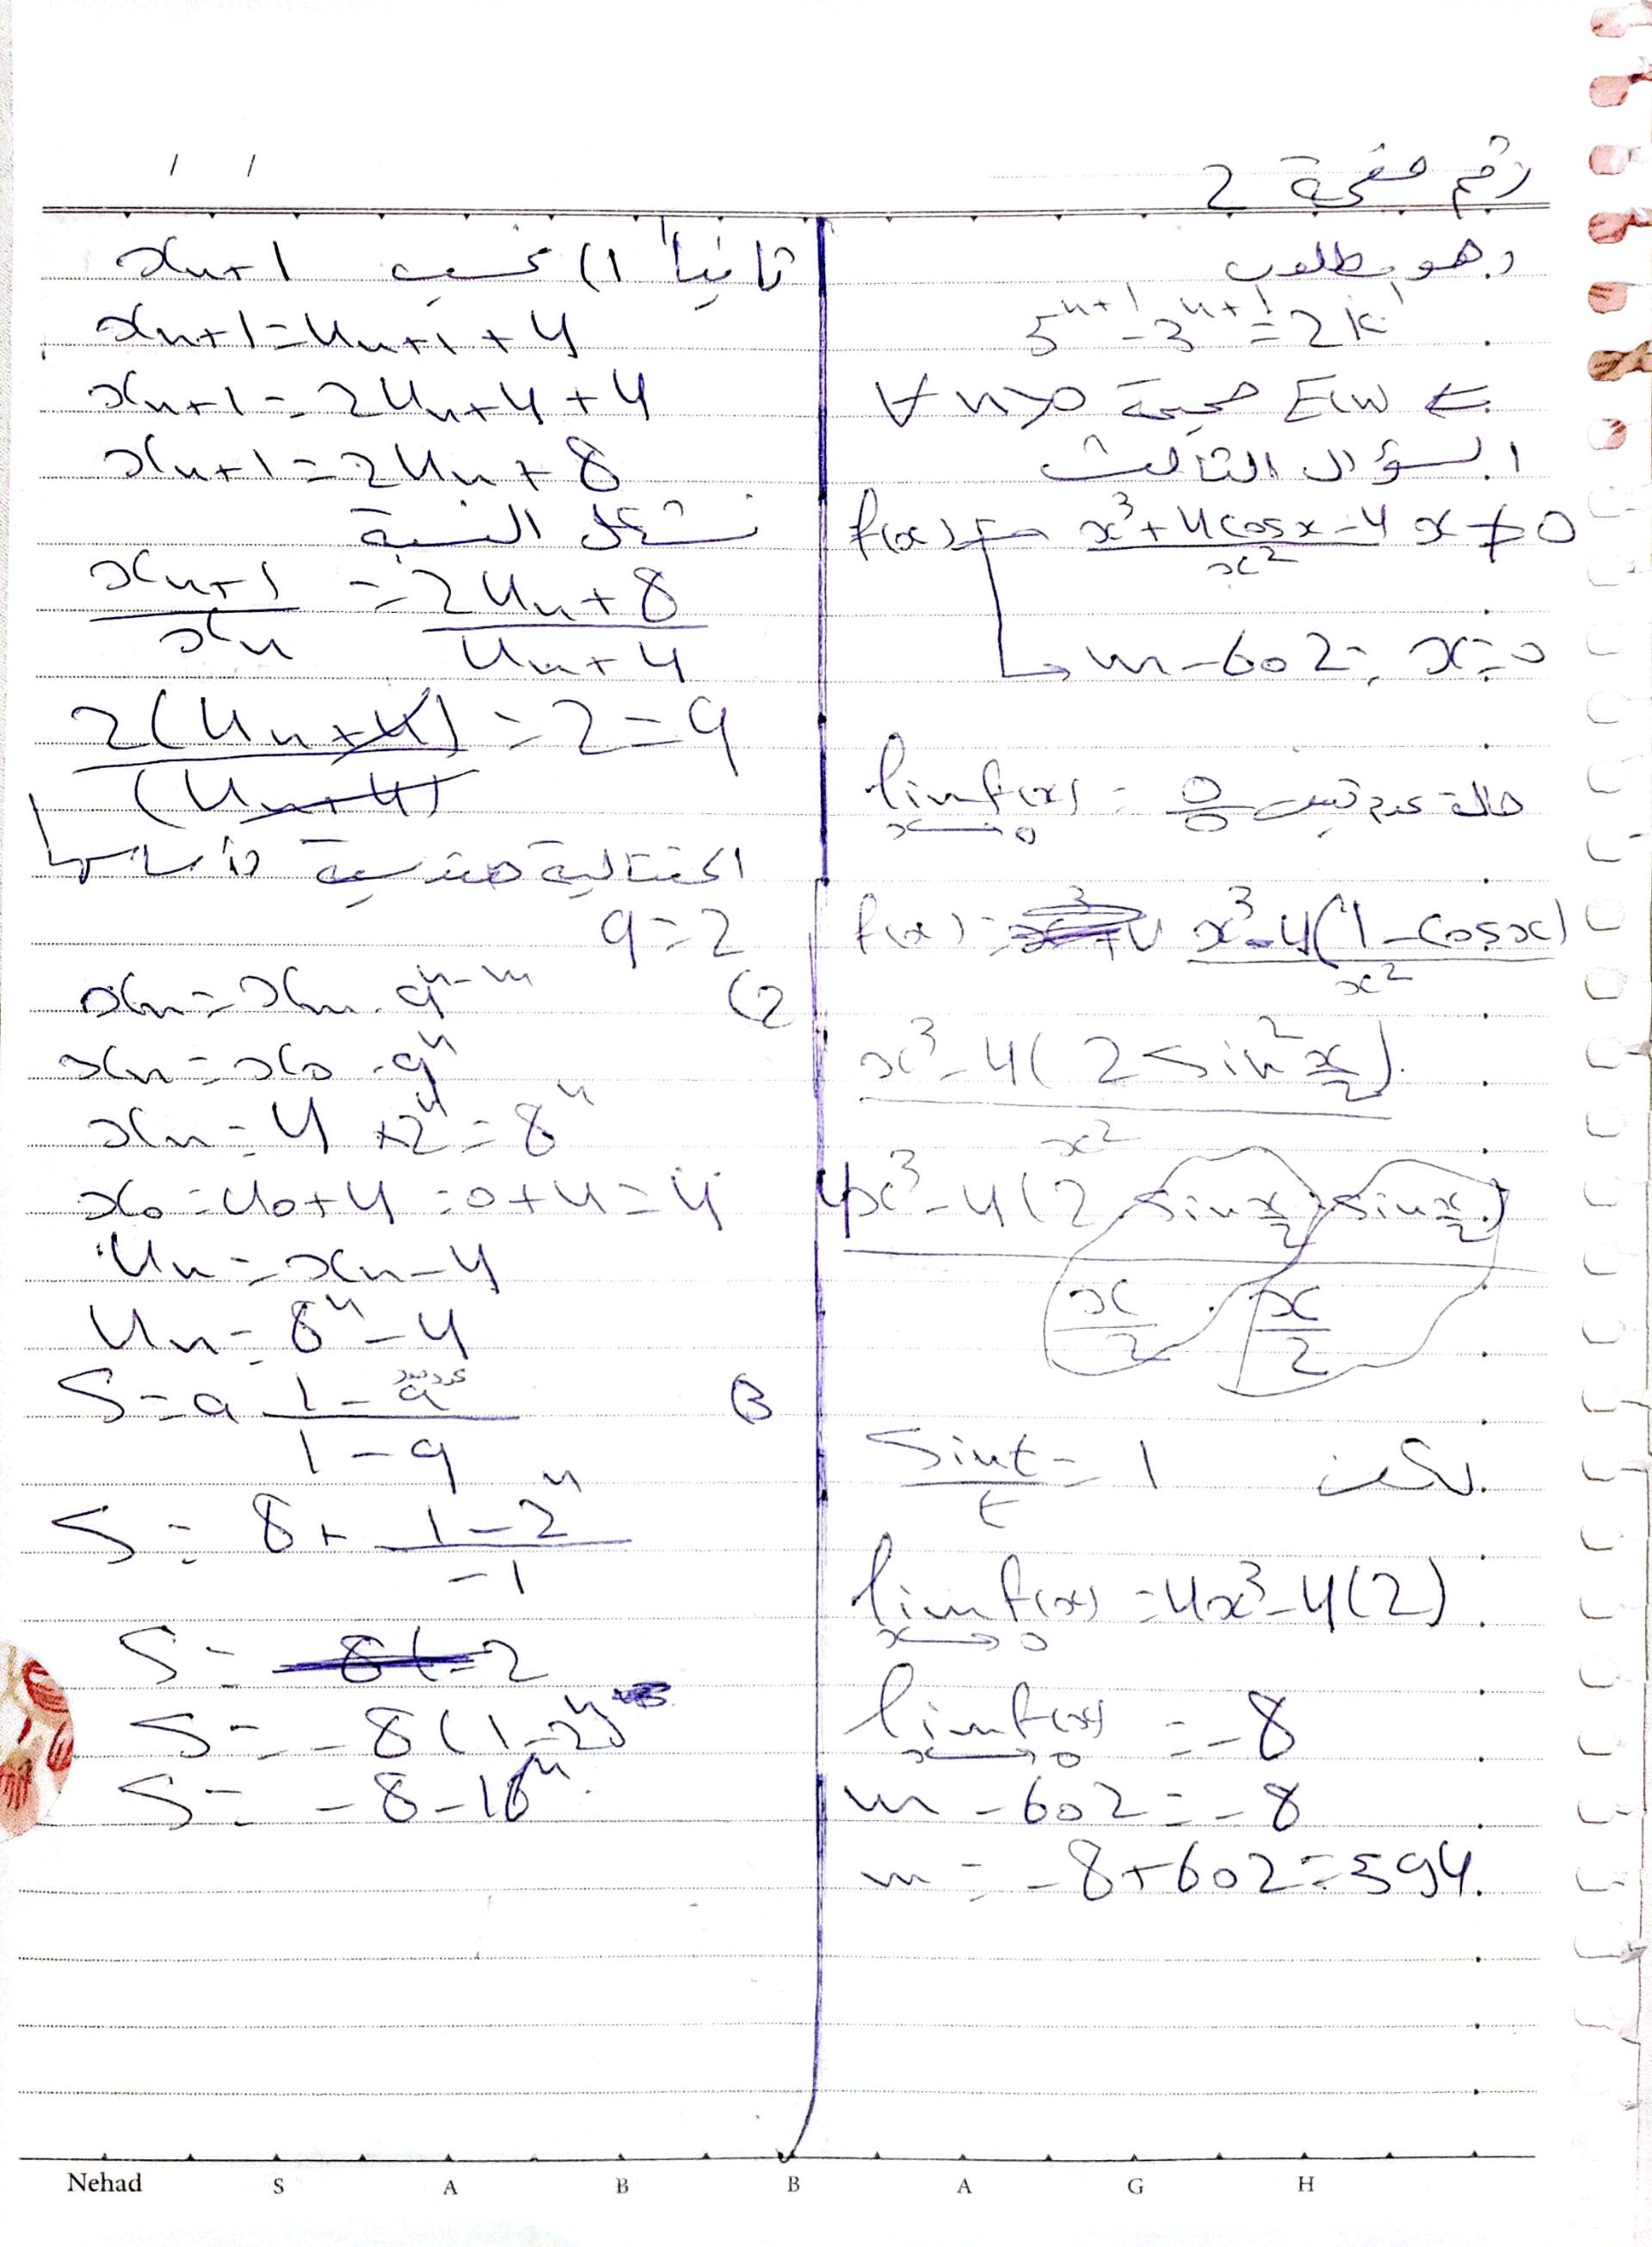 رقم صفحة 2
وهو مطلوب
5^{n+1} - 3^{n+1} = 2k'
⇐ E(n) صحيحة ∀ n≥0
السؤال الثالث
f(x) = \frac{x^3 + 4cosx - 4}{x^2} x ≠ 0
m - 602 = , x = 0
lim_{x→0} f(x) = \frac{0}{0} حالة عدم تعيين
f(x) = \frac{x^3 - 4(1 - cosx)}{x^2}
\frac{x^3 - 4(2 sin^2 \frac{x}{2})}{x^2}
\frac{4x^3 - 4(2 sin \frac{x}{2} . sin \frac{x}{2})}{\frac{x}{2} . \frac{x}{2}}
لكن \frac{sint}{t} = 1
lim_{x→0} f(x) = 4x^3 - 4(2)
lim_{x→0} f(x) = -8
m - 602 = -8
m = -8 + 602 = 594.
ثانياً 1) نحسب x_{n+1}
x_{n+1} = u_{n+1} + 4
x_{n+1} = 2u_n + 4 + 4
x_{n+1} = 2u_n + 8
نشكل النسبة
\frac{x_{n+1}}{x_n} = \frac{2u_n + 8}{u_n + 4}
\frac{2(u_n + 4)}{(u_n + 4)} = 2 = q
المتتالية هندسية أساسها
q = 2
2) x_n = x_m . q^{n-m}
x_n = x_0 . q^n
x_n = 4 × 2^n = 8^n
x_0 = u_0 + 4 = 0 + 4 = 4
u_n = x_n - 4
u_n = 8^n - 4
3) S = a \frac{1 - q^{عدد}}{1 - q}
S = 8 × \frac{1 - 2^n}{-1}
S = 8(-2
S = -8(1 - 2^n)
S = -8 - 16^n.
Nehad S A B B A G H